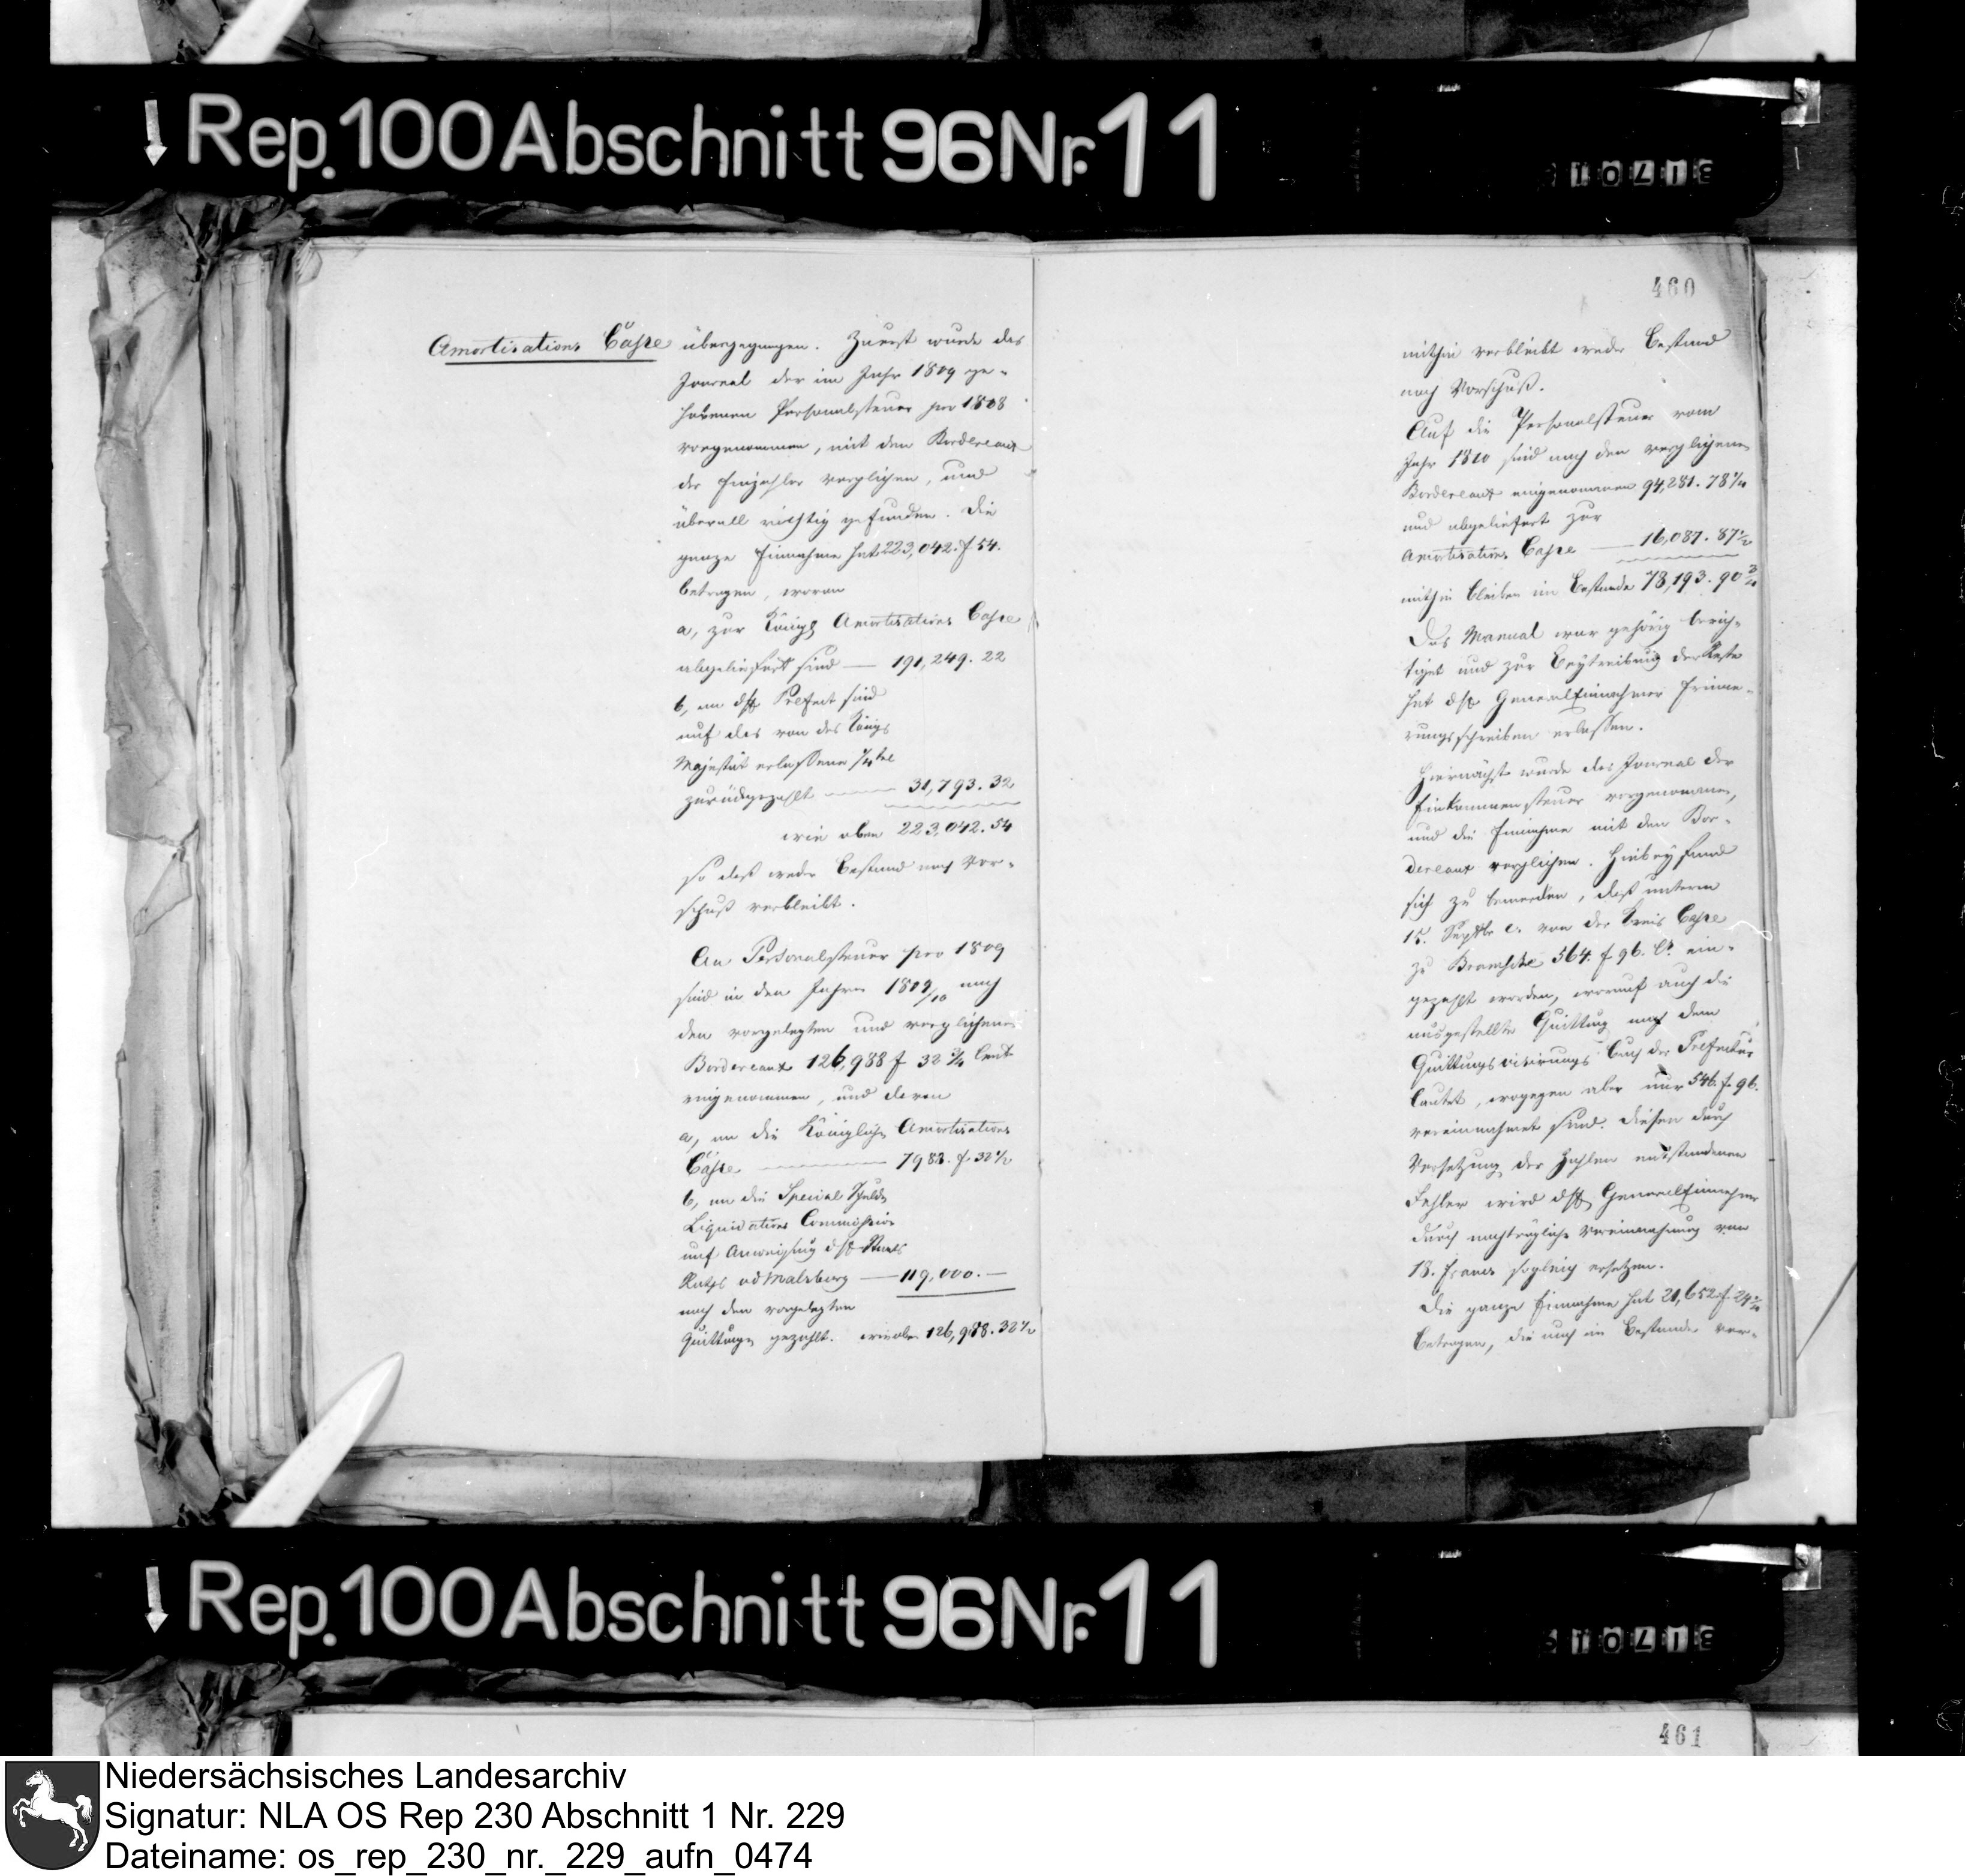 Rep. 100 Abschnitt 96 Nr. 11
Amortisations Casse
übergegangen. Zuerst wurde das
Journal der im Jahr 1809 ge-
hobenen Personalsteuer pro 1808
vorgenommen, mit den Bordereaux
der Einzahler verglichen, und
überall richtig gefunden. Die
ganze Einnahme hat 223,042. f 54.
betragen, wovon
a, zur Königl Amortisations Casse
abgeliefert sind — 191,249. 22
b, an dHr Präfect sind
auf das von des Königs
Majestät erlassene
zurückgezahlt — 31,793. 32
wie oben 223,042. 54
so daß weder Bestand noch Vor-
schuß verbleibt.
An Personalsteuer pro 1809
sind in den Jahren 1809/10 nach
den vorgelegten und verglichenen
Bordereaux 126,988 f 32 Cent
eingenommen, und davon
a, an die Königliche Amortisations
Casse — 7988. f 32½
b, an die Special Schulden
Liquidations Commission
auf Anweisung dHr Staats
Raths vd Malsburg — 119,000. —
nach den vorgelegten
Quittungen gezahlt. wie oben 126,988. 32½
460
mithin verbleibt weder Bestand
noch Vorschuß.
Auf die Personalsteuer vom
Jahr 1810 sind nach den verglichenen
Bordereaux eingenommen 94,281. 78
und abgeliefert zur
Amortisations Casse — 16,087. 87½
mithin bleiben im Bestande 78,193. 90
Das Manual war gehörig berich-
tiget und zur Beytreibung der Reste
hat dHr GeneralEinnehmer Erinne-
rungsschreiben erlassen.
Hiernächst wurde das Journal der
Einkommensteuer vorgenommen,
und die Einnahme mit den Bor-
dereaux verglichen. Hiebey fand
sich zu bemerken, daß unterm
15. Septbr c. von der Kreis Casse
zu Bramsche 564. f 96. Ct. ein-
gezahlt worden, worauf auch die
ausgestellte Quittung nach dem
Quittungsvisirungs Buch der Präfectur
lautet, wogegen aber nur 546. f. 96.
vereinnahmet sind. Diesen durch
Versetzung der Zahlen entstandenen
Fehler wird dHr GeneralEinnehmer
durch nachträgliche Vereinnahmung von
18. Francs sogleich ersetzen.
Die ganze Einnahme hat 21,652 f. 24
betragen, die noch im Bestande vor-
Rep. 100 Abschnitt 96 Nr. 11
461
Niedersächsisches Landesarchiv
Signatur: NLA OS Rep 230 Abschnitt 1 Nr. 229
Dateiname: os_rep_230_nr._229_aufn_0474